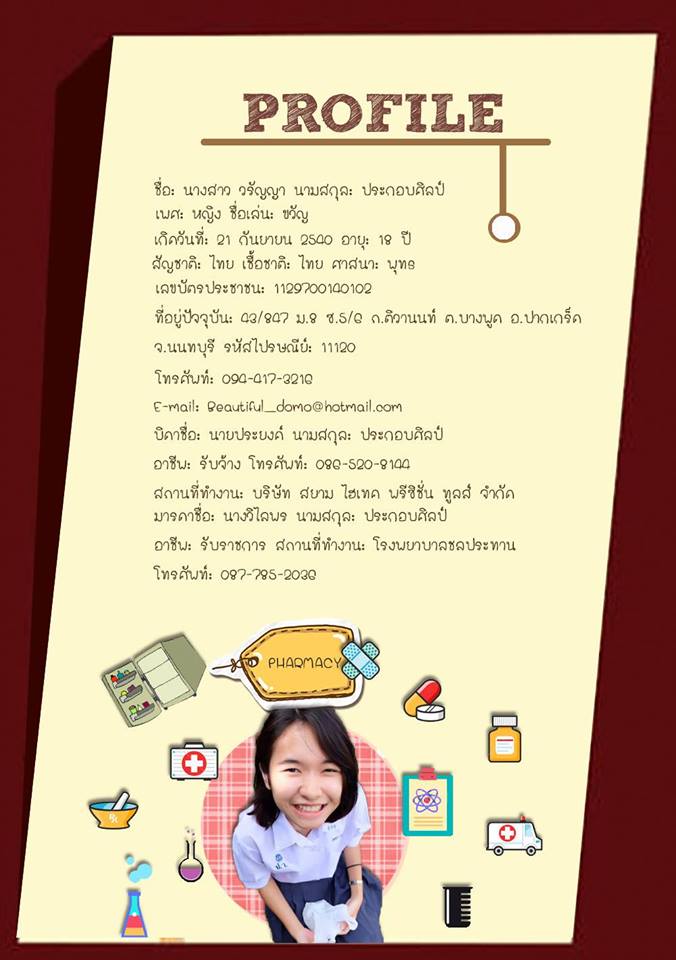 PROFILE
ชื่อ: นางสาว วรัญญา นามสกุล: ประกอบศิลป์
เพศ: หญิง ชื่อเล่น: ขวัญ
เกิดวันที่: 21 กันยายน 2540 อายุ: 18 ปี
สัญชาติ: ไทย เชื้อชาติ: ไทย ศาสนา: พุทธ
เลขบัตรประชาชน: 1129700140102
ที่อยู่ปัจจุบัน: 43/847 ม.8 ซ.5/6 ถ.ติวานนท์ ต.บางพูด อ.ปากเกร็ด
จ.นนทบุรี รหัสไปรษณีย์: 11120
โทรศัพท์: 094-417-3216
E-mail: Beautiful_domo@hotmail.com
บิดาชื่อ: นายประยงค์ นามสกุล: ประกอบศิลป์
อาชีพ: รับจ้าง โทรศัพท์: 086-520-8144
สถานที่ทำงาน: บริษัท สยาม ไฮเทค พรีซิชั่น ทูลส์ จำกัด
มารดาชื่อ: นางวิไลพร นามสกุล: ประกอบศิลป์
อาชีพ: รับราชการ สถานที่ทำงาน: โรงพยาบาลชลประทาน
โทรศัพท์: 087-785-2036
PHARMACY